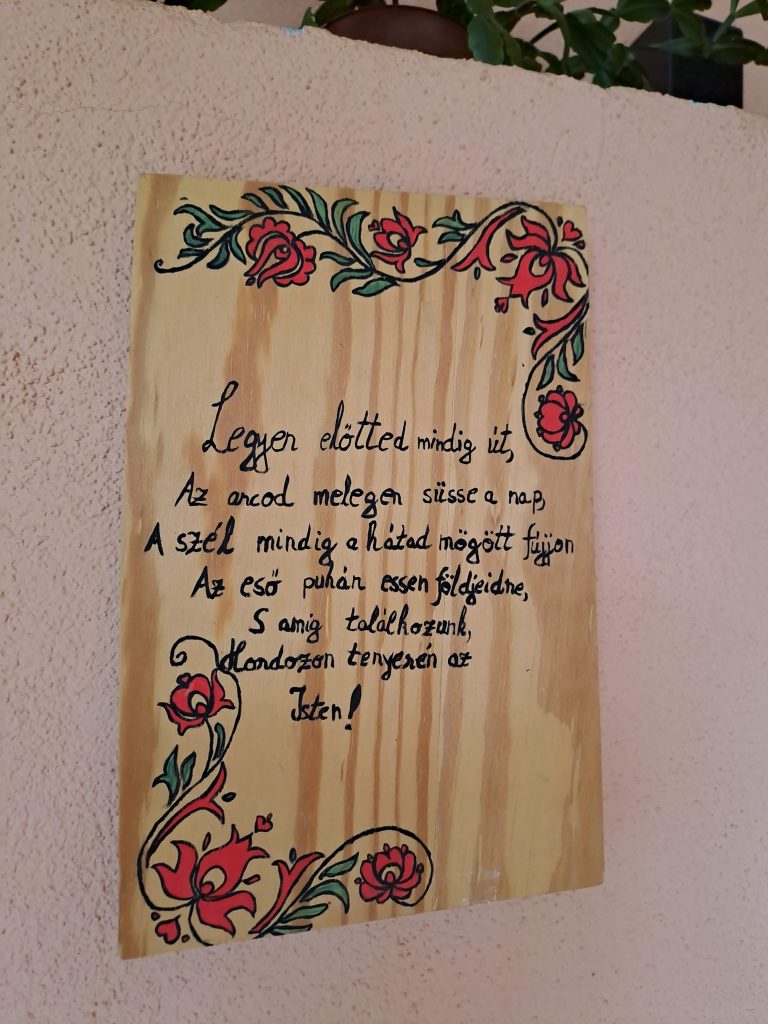 Legyen előtted mindig út,
Az arcod melegen süsse a nap,
A szél mindig a hátad mögött fújjon
Az eső puhán essen földjeidre,
S amíg találkozunk,
Hordozon tenyerén az
Isten!